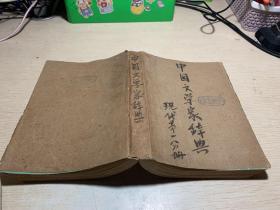 中国文学家辞典
现代第一分册
中国文学家辞典